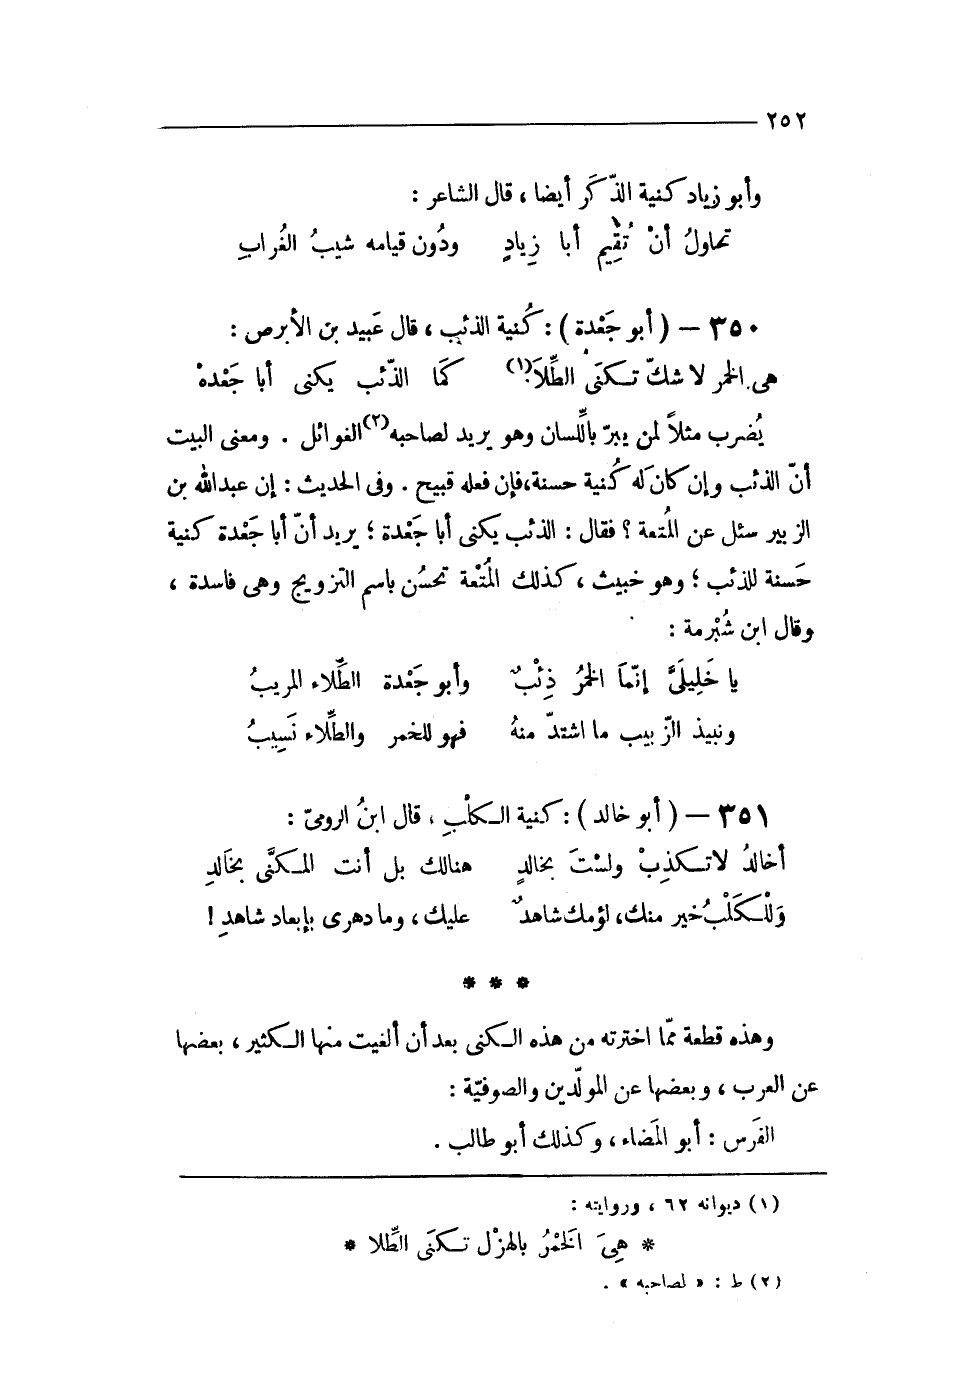 ٢٥٢
وأبو زياد كنية الذّكَر أيضا ، قال الشاعر :
تحاولُ أنْ تُقِيم أبا زِيادٍ ودُون قيامه شيبُ الغُرابِ
٣٥٠ – ( أبو جَعْدة ) : كُنية الذئب ، قال عَبيد بن الأبرص :
هى الخمر لا شكّ تكنَى الطِّلَا(١) كَمَا الذّئب يكنى أبا جَعْدهْ
يُضرب مثلاً لمن يبرّ باللِّسان وهو يريد لصاحبه(٢) الغوائل . ومعنى البيت
أنّ الذئب وإن كان له كُنية حسنة، فإن فعله قبيح . وفى الحديث : إن عبدالله بن
الزبير سئل عن المُتعة ؟ فقال : الذئب يكنى أبا جَعْدة ؛ يريد أنّ أبا جَعْدة كنية
حَسنة للذئب ؛ وهو خبيث ، كذلك المُتْعة تحسُن باسم التزويج وهى فاسدة ،
وقال ابن شُبْرمة :
يا خَلِيلَىَّ إنّمَا الخمرُ ذِئْبٌ وأبو جَعْدة الطِّلاء المريبُ
ونبيذ الزّبيب ما اشتدّ منهُ فهو للخمر والطِّلاء نَسِيبُ
٣٥١ – ( أبو خالد ) : كنية الكلْبِ ، قال ابنُ الرومىّ :
أخالدُ لا تكذِبْ ولسْتَ بخالدٍ هنالك بل أنت المكنَّى بخَالدِ
وَلْلكَلْبُ خير منك، لؤمك شاهدٌ عليك ، وما دهرى بإبعاد شاهدِ !
* * *
وهذه قطعة ممّا اخترته من هذه الكنى بعد أن ألغيت منها الكثير ، بعضها
عن العرب ، وبعضها عن المولّدين والصوفيّة :
الفَرس : أبو المَضاء ، وكذلك أبو طالب .
(١) ديوانه ٦٢ ، وروايته :
* هِىَ الخَمْرُ بالهزْل تكنَى الطِّلا *
(٢) ط : « لصاحبه » .